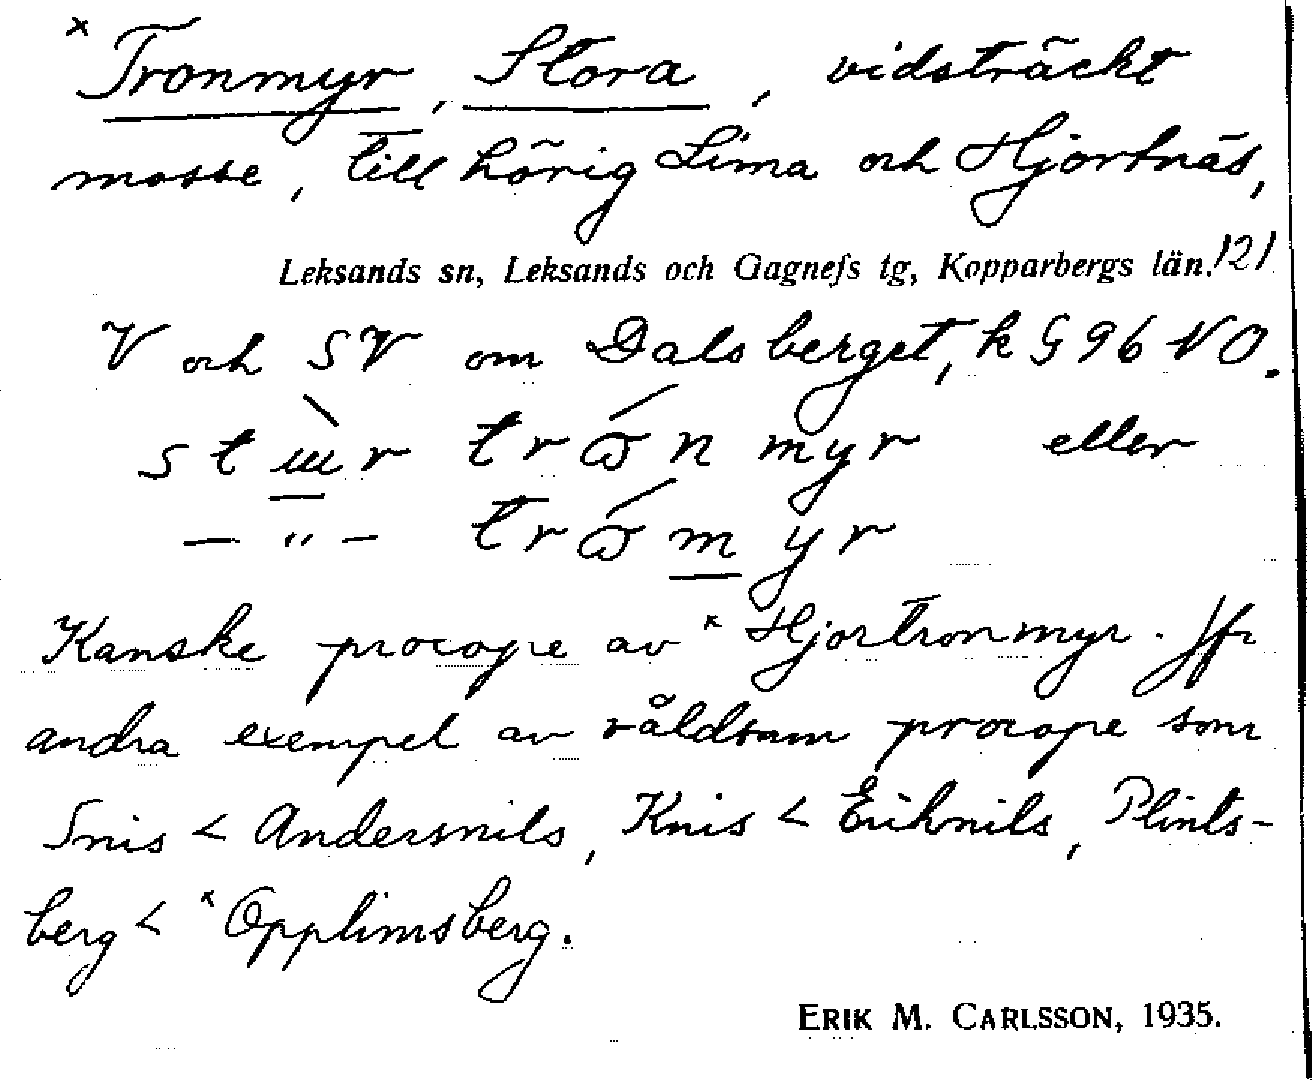 × Tronmyr, Stora, vidsträckt
mosse, tillhörig Lima och Hjortnäs,
Leksands sn, Leksands och Gagnefs tg, Kopparbergs län. 121
V och SV om Dalsberget, k G 96 NO.
myr eller
— " —
Kanske procope av × Hjortronmyr. Jfr
andra exempel av våldsam procope som
Snis < Andersnils, Knis < Eriknils, Plints-
berg < × Opplimsberg.
ERIK M. CARLSSON, 1935.